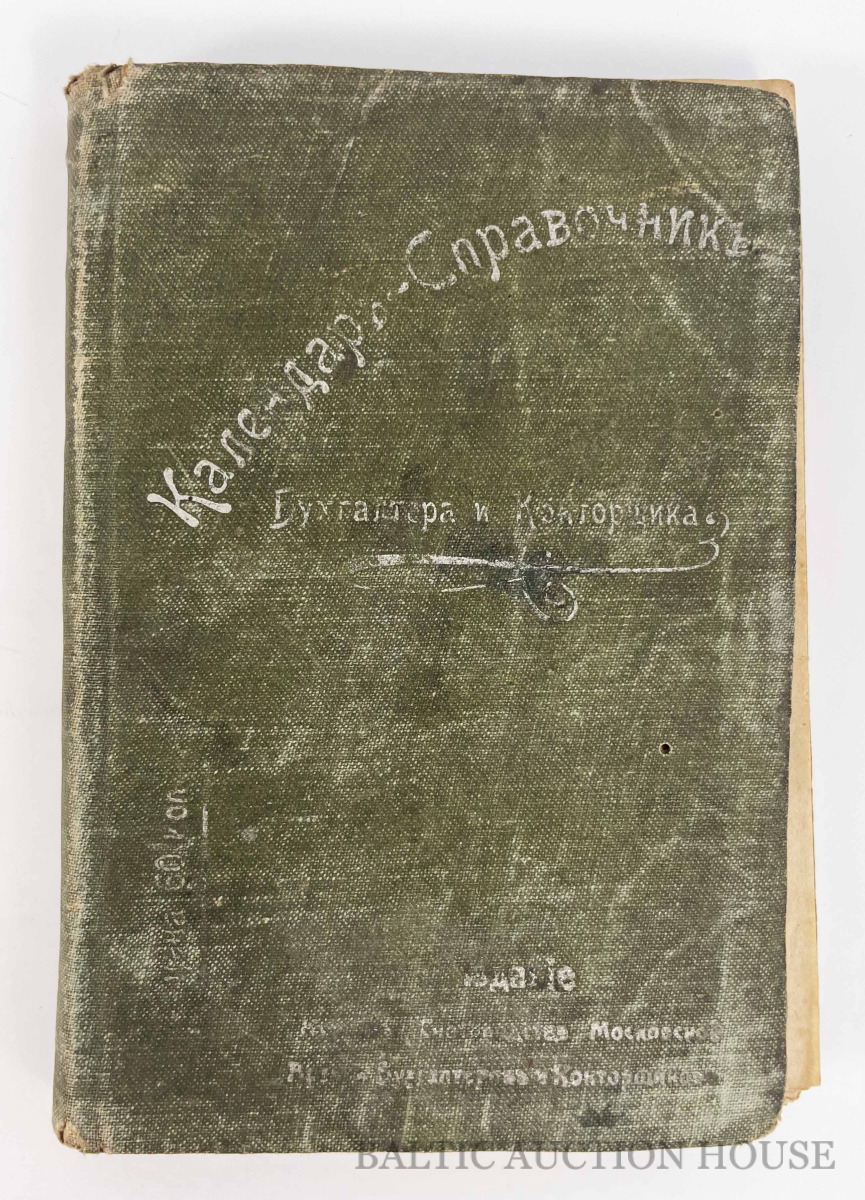 Календарь-Справочникъ
Бухгалтера и Конторщика
Цѣна 60 коп
Изданіе
Московской
Бухгалтеровъ и Конторщиковъ
BALTIC AUCTION HOUSE